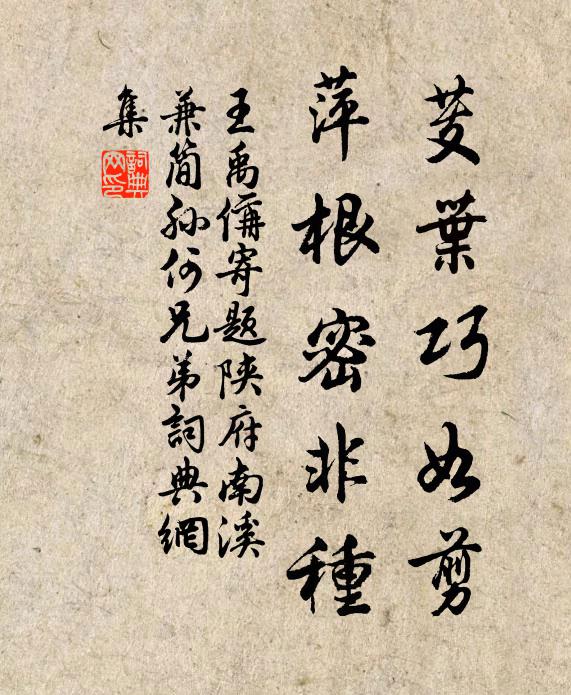 菱葉巧如剪
萍根密非種
王禹偁寄題陝府南溪
兼簡孫何兄弟詞典網
集
詞典
网印